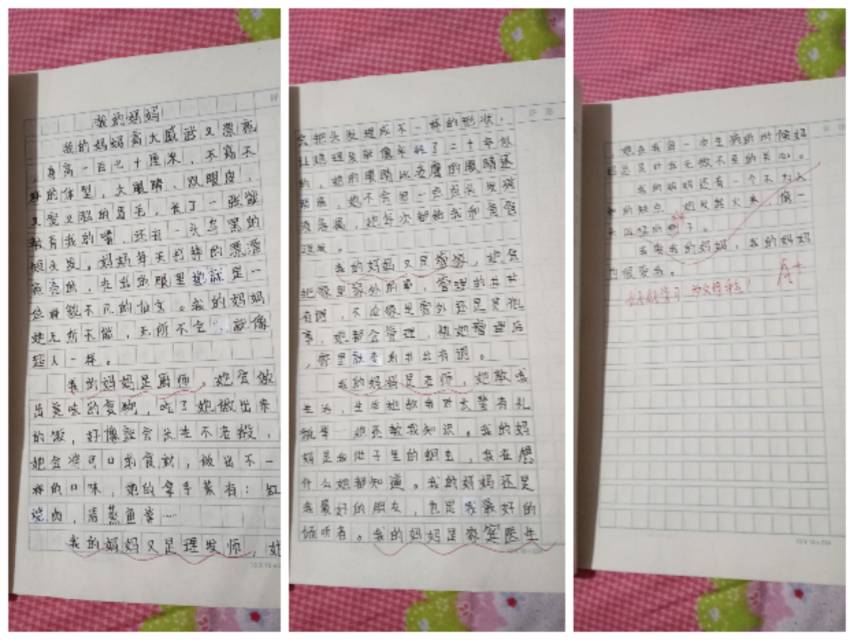 我的妈妈
我的妈妈高大威武又漂亮
,身高一百七十厘米,不高不
胖的体型,大眼睛、双眼皮,
又弯又的眉毛,长了一张能
教育我的嘴,还有一头乌黑的
头发。妈妈每天打扮的漂漂
亮亮的,在我的眼里她就是一
位无所不能的仙女。我的妈妈
她无所不能,无所不会,就像
超人一样。
我的妈妈是厨师,她会做
出美味的食物,吃了她做出来
的饭,好像会长生不老般,
她会将可口的食材,做出不一
样的口味,她的拿手菜有:红
烧肉,清蒸鱼等……
我的妈妈又是理发师,她
会把头发理成不一样的形状,
让她理发就像年轻了二十年似
的,她的眼睛比老鹰的眼睛还
她每次都给我和爸爸
理发。
我的妈妈又是管家,她会
把家里家外的事,管理的井井
有条,不论你是室外还是其他
事,她都会管理,被她管理后
,家里就变的井井有条。
我的妈妈是老师,她教我
生活,生活她教我对长辈有礼
貌等,她还教我知识。我的妈
妈是我肚子里的蛔虫,我在想
什么她都知道。我的妈妈还是
我最好的朋友,也是我最好的
倾听者。我的妈妈是家庭医生
,她在我每一次生病的时候妈
妈总是对我无微不至的关心。
我的妈妈还有一个不为人
知的缺点,她发起火来,像一
头凶猛的狮子。
我爱我的妈妈,我的妈妈
也很爱我。
A+